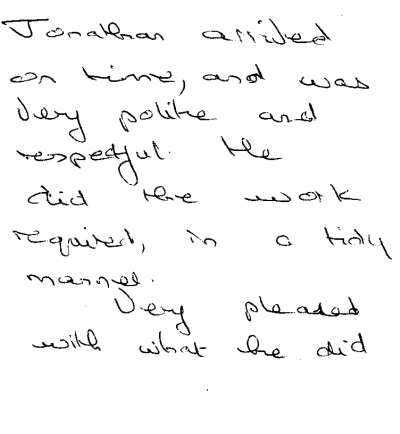 Jonathan arrived
on time, and was
Very polite and
respectful. He
did the work
required, in a tidy
manner.
Very pleased
with what he did